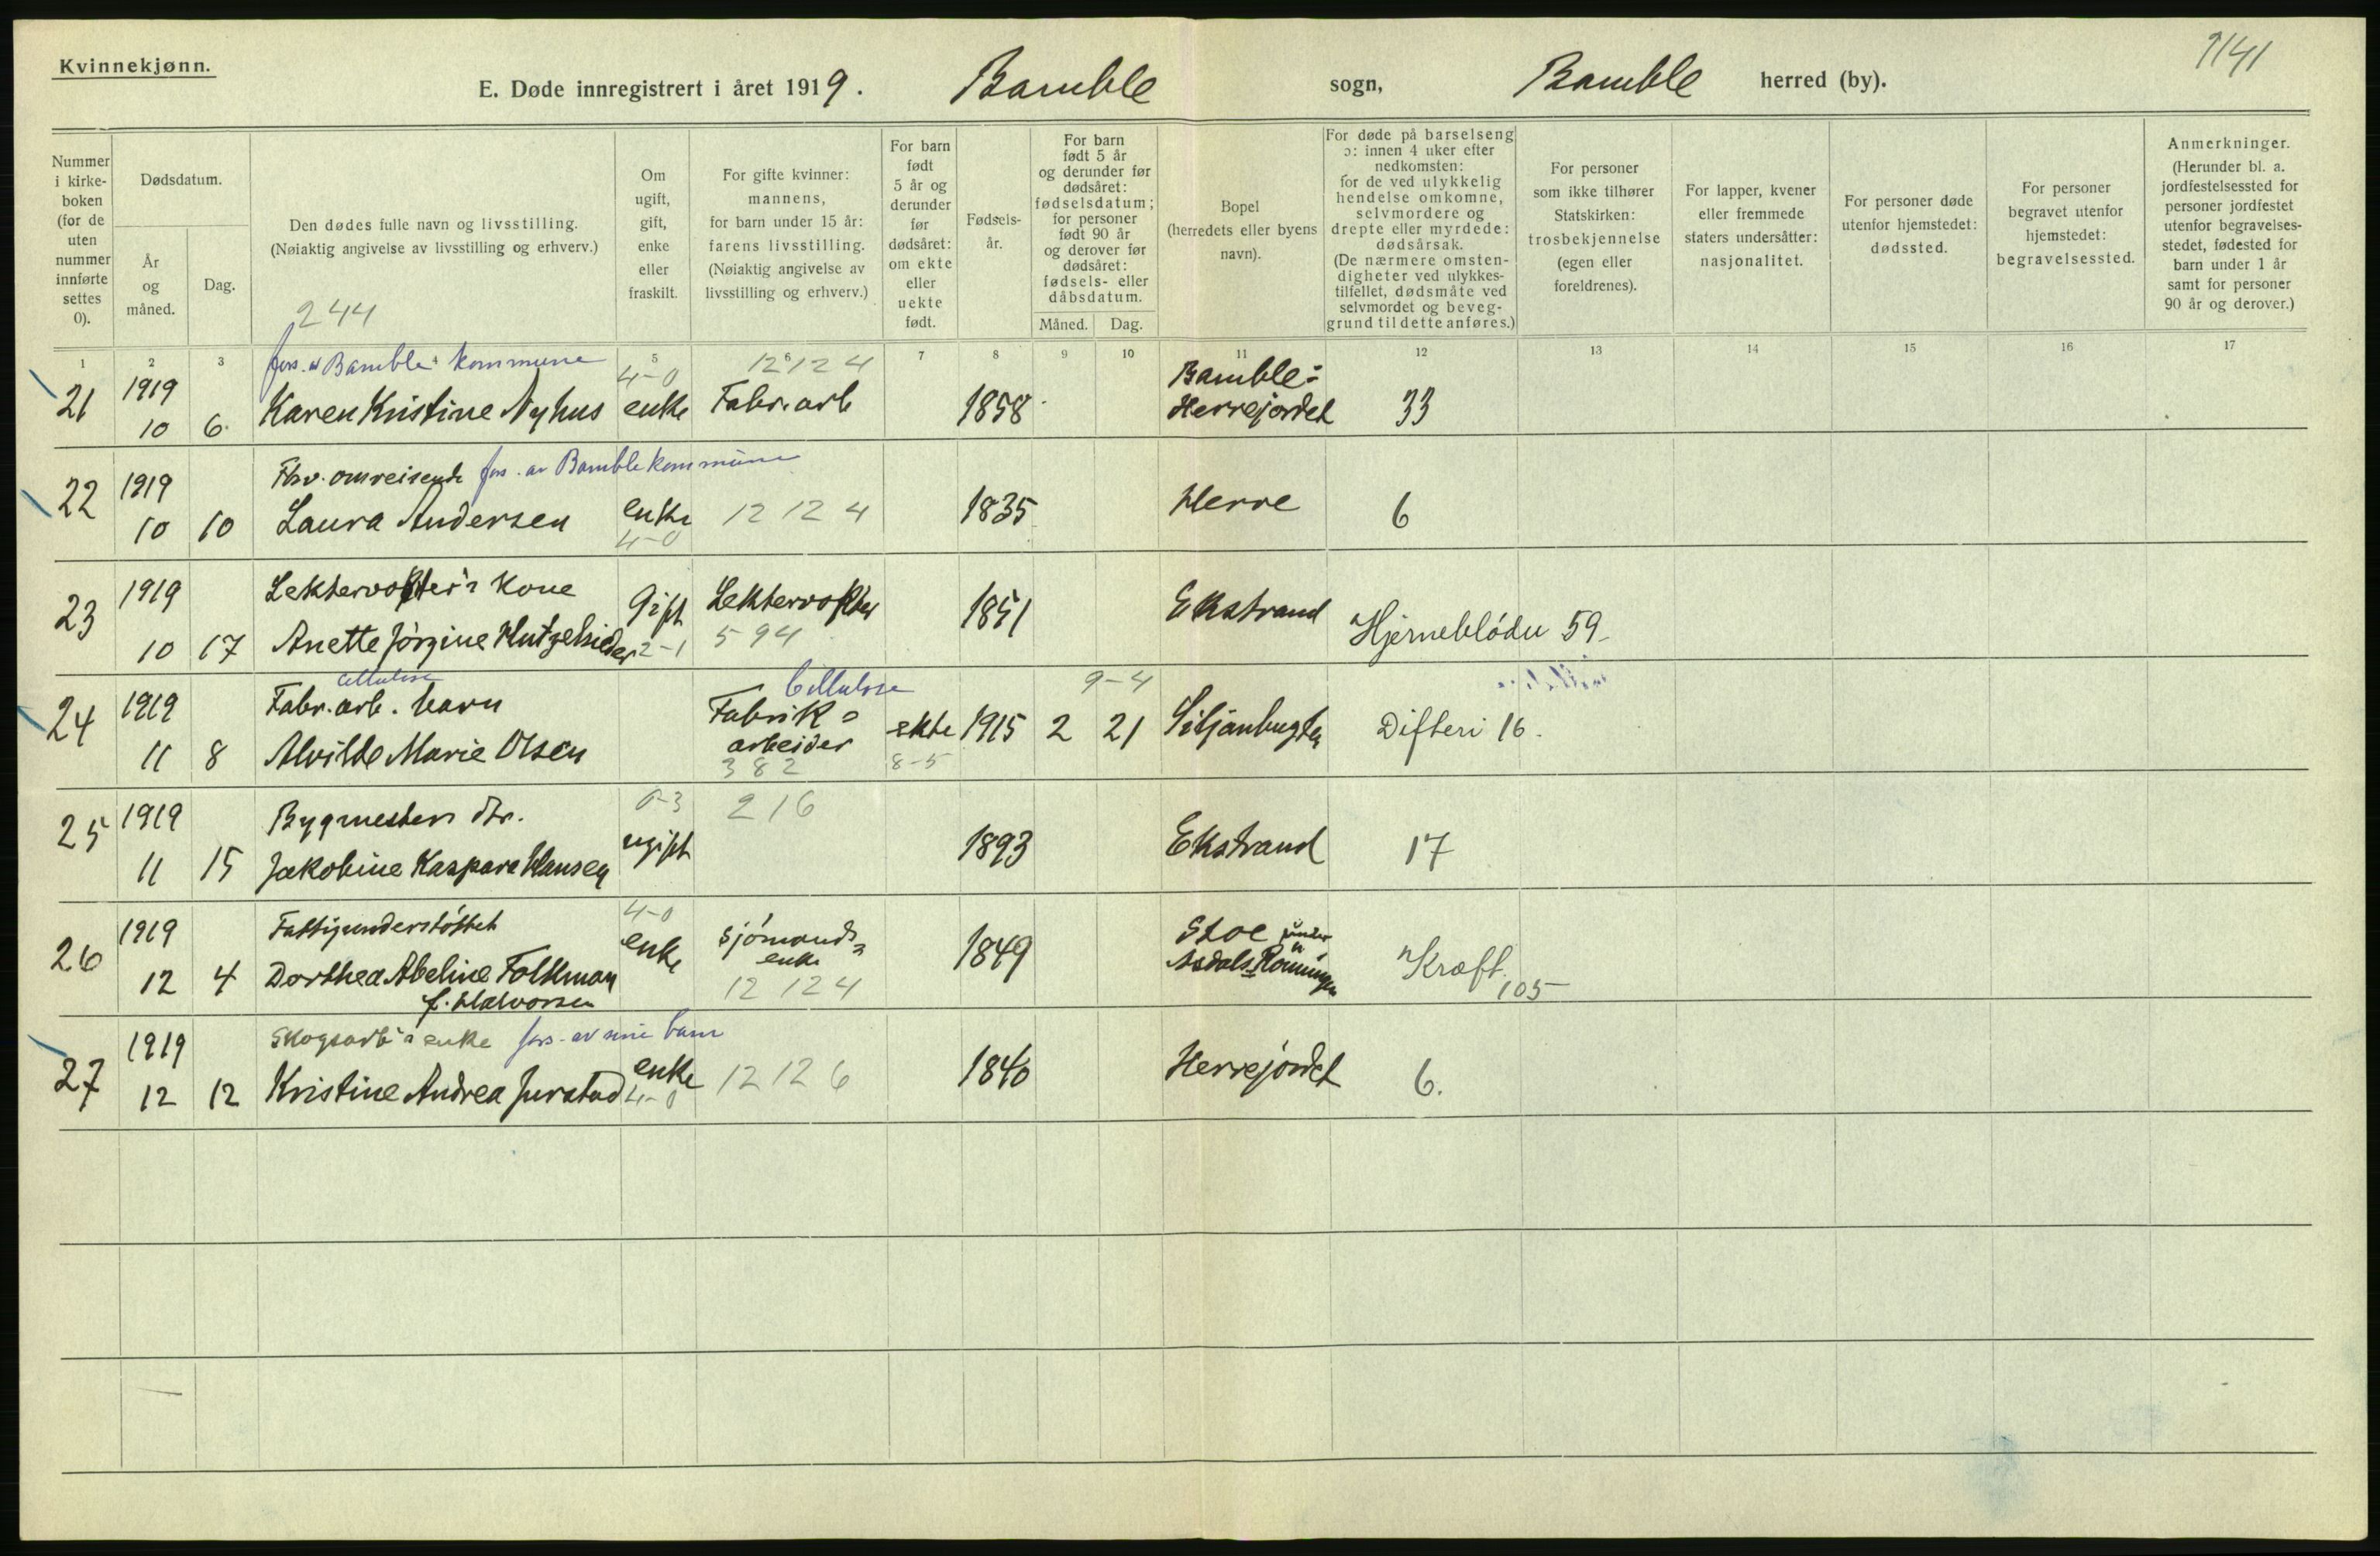 Kvinnekjønn.
E. Døde innregistrert i året 1919. Bamble sogn, Bamble herred (by).
1141
Nummer i kirkeboken (for de uten nummer innførte settes 0).
Dødsdatum.
År og måned.
Dag.
Den dødes fulle navn og livsstilling.
(Nøiaktig angivelse av livsstilling og erhverv.)
244
Om ugift, gift, enke eller fraskilt.
For gifte kvinner: mannens, for barn under 15 år: farens livsstilling. (Nøiaktig angivelse av livsstilling og erhverv.)
For barn født 5 år og derunder før dødsåret: om ekte eller uekte født.
Fødsels-år.
For barn født 5 år og derunder før dødsåret: fødselsdatum; for personer født 90 år og derover før dødsåret: fødsels- eller dåbsdatum.
Måned. Dag.
Bopel (herredets eller byens navn).
For døde på barselseng ɔ: innen 4 uker efter nedkomsten: for de ved ulykkelig hendelse omkomne, selvmordere og drepte eller myrdede: dødsårsak. (De nærmere omstendigheter ved ulykkestilfellet, dødsmåte ved selvmordet og beveggrund til dette anføres.)
For personer som ikke tilhører Statskirken: trosbekjennelse (egen eller foreldrenes).
For lapper, kvener eller fremmede staters undersåtter: nasjonalitet.
For personer døde utenfor hjemstedet: dødssted.
For personer begravet utenfor hjemstedet: begravelsessted.
Anmerkninger. (Herunder bl. a. jordfestelsessted for personer jordfestet utenfor begravelsesstedet, fødested for barn under 1 år samt for personer 90 år og derover.)
1 2 3 4 5 6 7 8 9 10 11 12 13 14 15 16 17
fors. av Bamble kommune 4-0 12 12 4 Bamble:
21 1919 10 6 Karen Kristine Nyhus enke Fabr. arb 1858 Herrejordet 33
Fhv. omreisende fors. av Bamble kommune
22 1919 10 10 Laura Andersen enke 4-0 12 12 4 1835 Herre 6
Lektervokter's Kone
23 1919 10 17 Anette Jörgine Hutzelsieder Gift 2-1 Lektervokter 594 1851 Ekstrand Hjerneblödn 59
cellulose Cellulose 9-4
Fabr. arb. barn
24 1919 11 8 Alvilde Marie Olsen Fabrik=arbeider 382 ekte 8-5 1915 2 21 Siljanbugten Difteri 16.
Bygmesters dtr. 6-3 216
25 1919 11 15 Jakobine Kaspara Hansen ugift 1893 Ekstrand 17
Fattigunderstöttet 4-0
26 1919 12 4 Dorthea Abeline Folkman f. Halvorsen enke sjömands enke 12 12 4 1849 Stoe under Asdals Rönningen Kræft 105
Skogsarb's enke fors. av sine barn
27 1919 12 12 Kristine Andrea Jurstad enke 4-0 12 12 6 1840 Herrejordet 6.